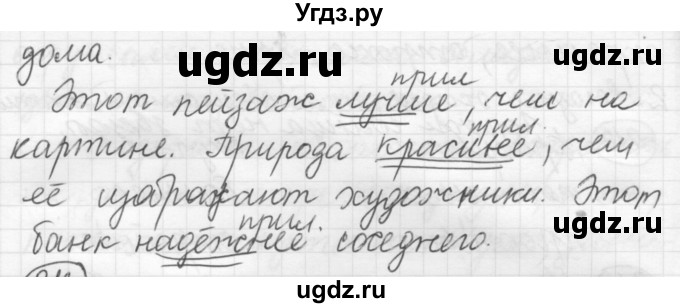 Угдз.ру
дома.
ugdz.ru
ugdz.ru
прил
Этот пейзаж лучше, чем на
прил.
картине. Природа красивее, чем
её изображают художники. Этот
прил.
банк надёжнее соседнего.
ugdz.ru
ugdz.ru
ugdz.ru